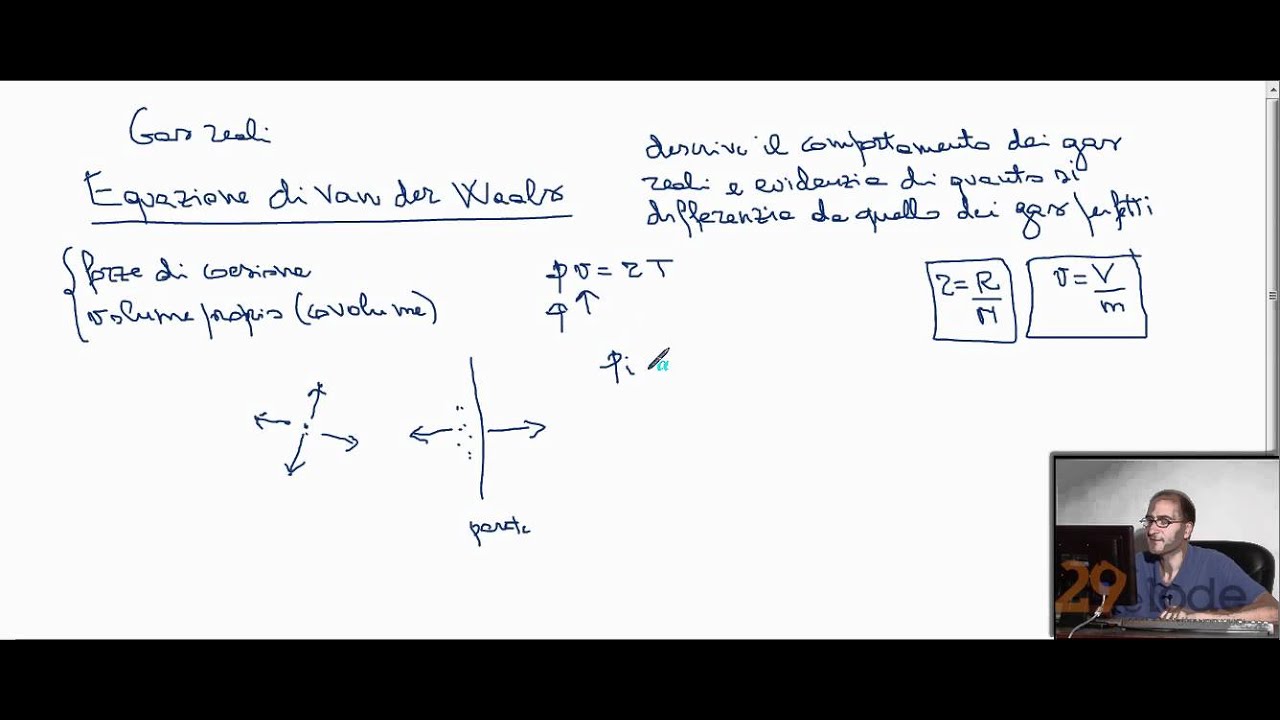 Gas reali
Equazione di Van der Waals
descrive il comportamento dei gas
reali e evidenzia di quanto si
differenzia da quello dei gas perfetti
forze di coesione
volume proprio (covolume)
pv = rT
p ↑
r = R/M
v = V/m
pi α
parete
29elode